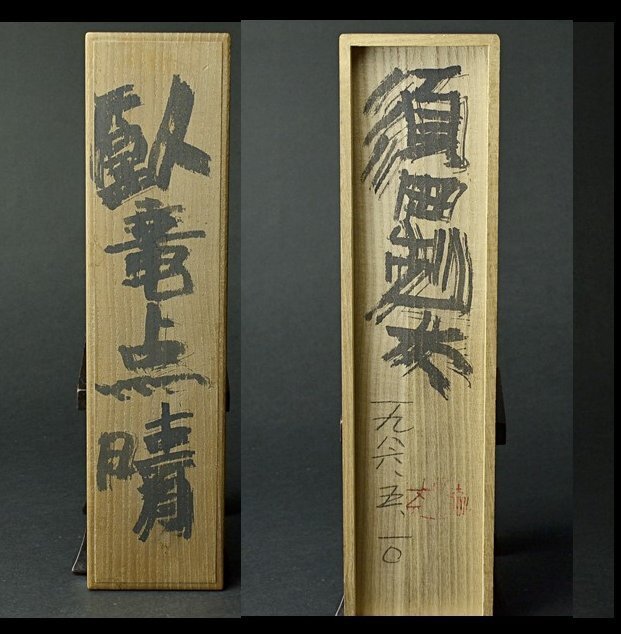 臥竜点睛
須田剋太
一九八六.五.一〇